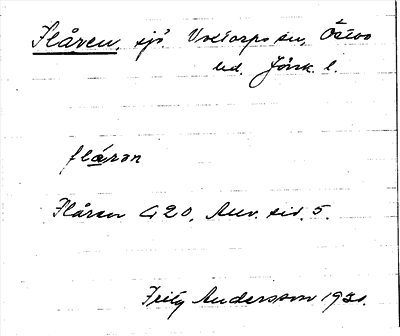 Flåren, sjö. Voxtorps sn, Östbo
hd. Jönk. l.
flåron
Flåren G 20, Anv. sid. 5.
Fritz Andersson 1930.